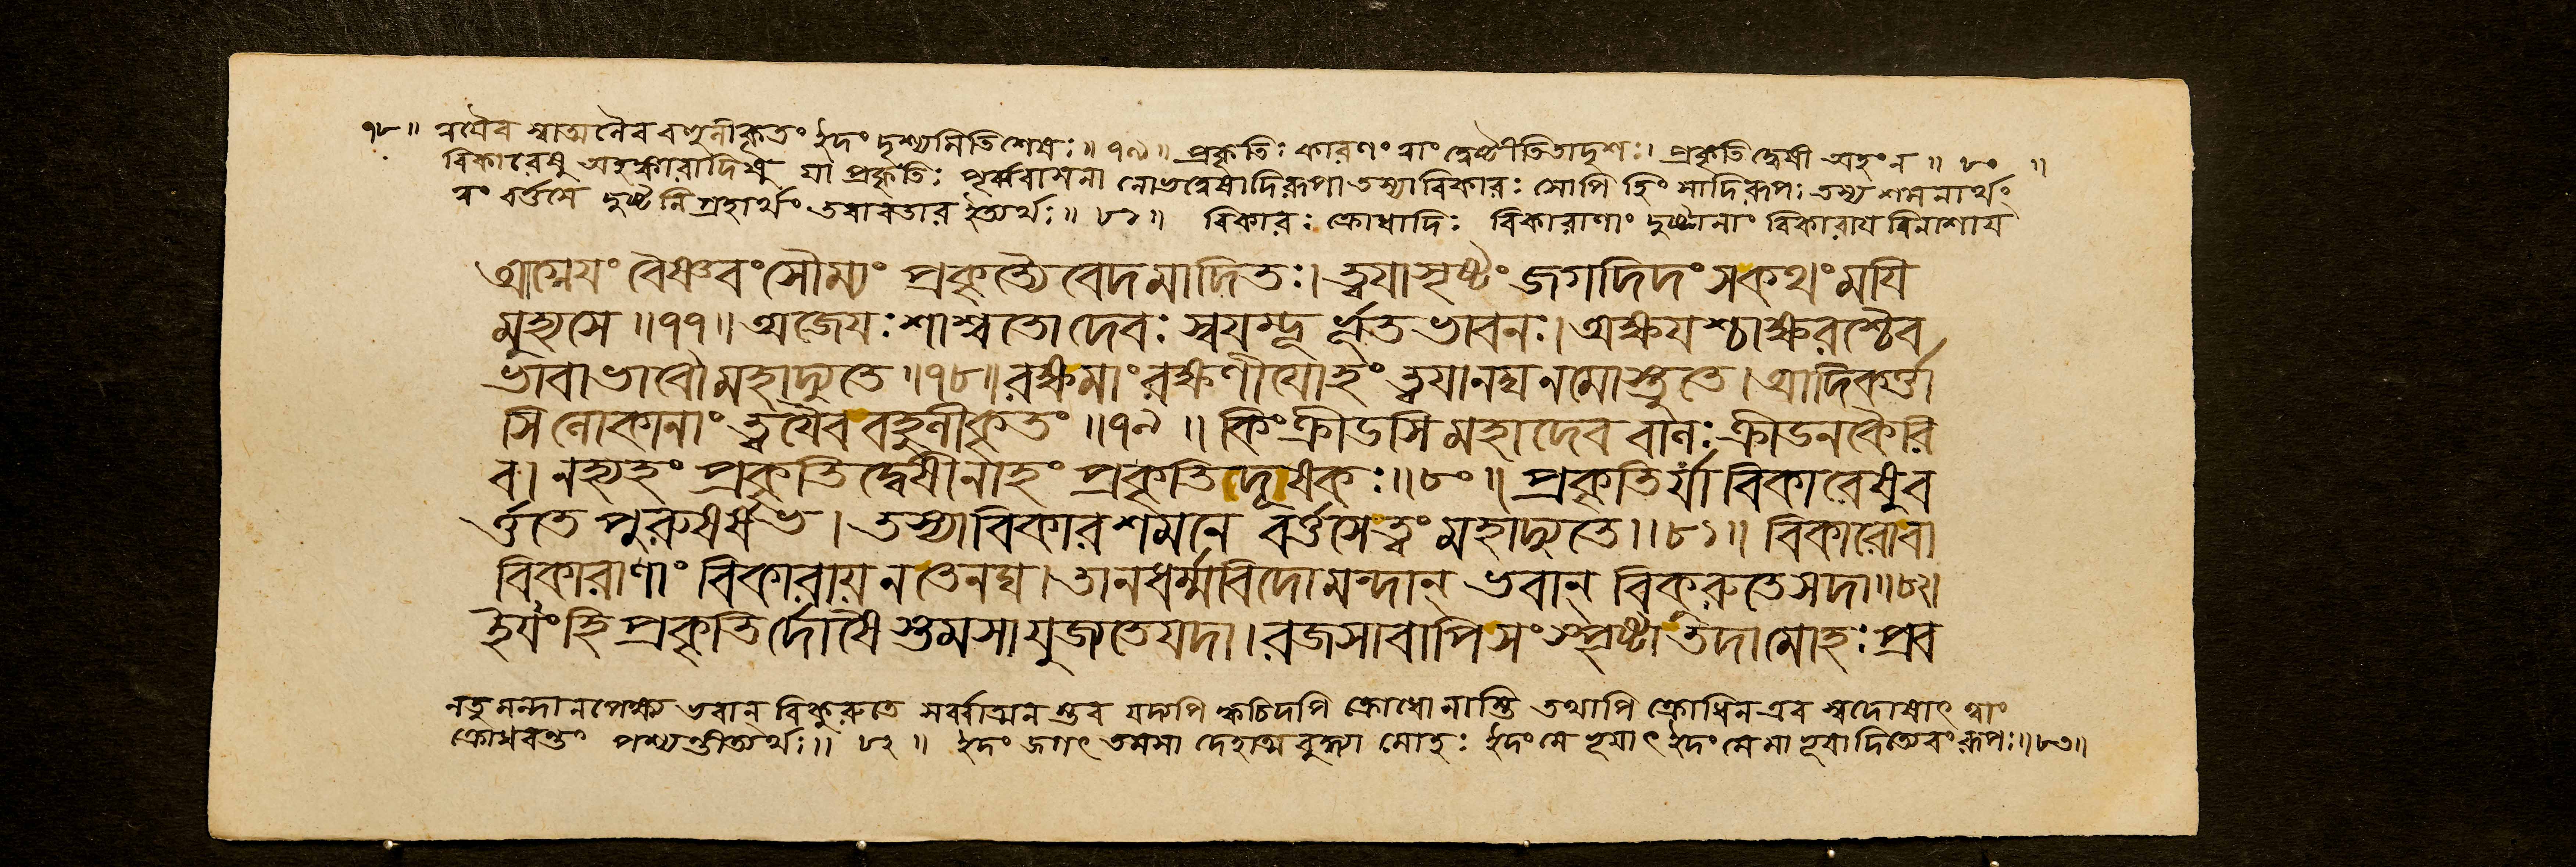 ৭৮॥ ত্বযৈব স্বাত্মনৈব বহুলীকৃতং ইদং দৃশ্যমিতিশেষঃ॥ ৭৯॥ প্রকৃতিঃ কারণং ত্বাং দ্বেষ্টীতিতাদৃশঃ। প্রকৃতিদ্বেষী অহং ন ॥ ৮০ ॥
বিকারেষু অহঙ্কারাদিষু যা প্রকৃতিঃ পূর্ব্ববাসনা লোভদ্বেষাদিরূপা তস্যা বিকারঃ সোপি হিংসাদিরূপঃ তস্য শমনার্থং
ত্বং বর্ত্তসে দুষ্টনিগ্রহার্থং তবাবতার ইত্যর্থঃ॥ ৮১॥ বিকারঃ ক্রোধাদিঃ বিকারাণাং দুষ্টানাং বিকারায বিনাশায
আগ্নেযং বৈষ্ণবং সৌম্যং প্রকৃত্যৈবেদমাদিতঃ। ত্বযাসৃষ্টং জগদিদং সকথং মযি
মুহ্যসে ॥৭৭॥ অজেযঃ শাশ্বতো দেবঃ স্বযম্ভূ র্ভূতভাবনঃ। অক্ষযশ্চাক্ষরশ্চৈব
ভাবাভাবৌ মহাদ্যুতে ॥৭৮॥ রক্ষমাং রক্ষণীযোহং ত্বযানঘ নমোস্তুতে। আদিকর্ত্তা
সি লোকানাং ত্বযৈব বহুলীকৃতং ॥৭৯॥ কিং ক্রীডসি মহাদেব বালঃ ক্রীডনকৈরি
ব। নহ্যহং প্রকৃতিদ্বেষীনাহং প্রকৃতিদূষকঃ॥৮০॥ প্রকৃতির্যা বিকারেষুব
র্ত্ততে পুরুষর্ষভ। তস্যাবিকারশমনে বর্ত্তসেত্বং মহাদ্যুতে॥৮১॥ বিকারোবা
বিকারাণাং বিকারায় নতেনঘ। তানধর্ম্মবিদোমন্দান্ ভবান্ বিকুরুতেসদা॥৮২॥
ইযং হি প্রকৃতির্দোষৈ স্তমসাযুজ্যতেযদা। রজসাবাপিসংস্পৃষ্টা তদামোহঃ প্রব
নতু মন্দানপেক্ষ্য ভবান্ বিকুরুতে সর্ব্বাত্মন স্তব যদ্যপি ক্বচিদপি ক্রোধো নাস্তি তথাপি ক্রোধিন এব স্বদোষাৎ ত্বাং
ক্রোধবন্তং পশ্যন্তীত্যর্থঃ॥ ৮২॥ ইদং জগৎ তমসা দেহাত্মবুদ্ধ্যা মোহঃ ইদং মে ভূযাৎ ইদং মে মা ভূযাদিত্যেবং রূপঃ॥৮৩॥